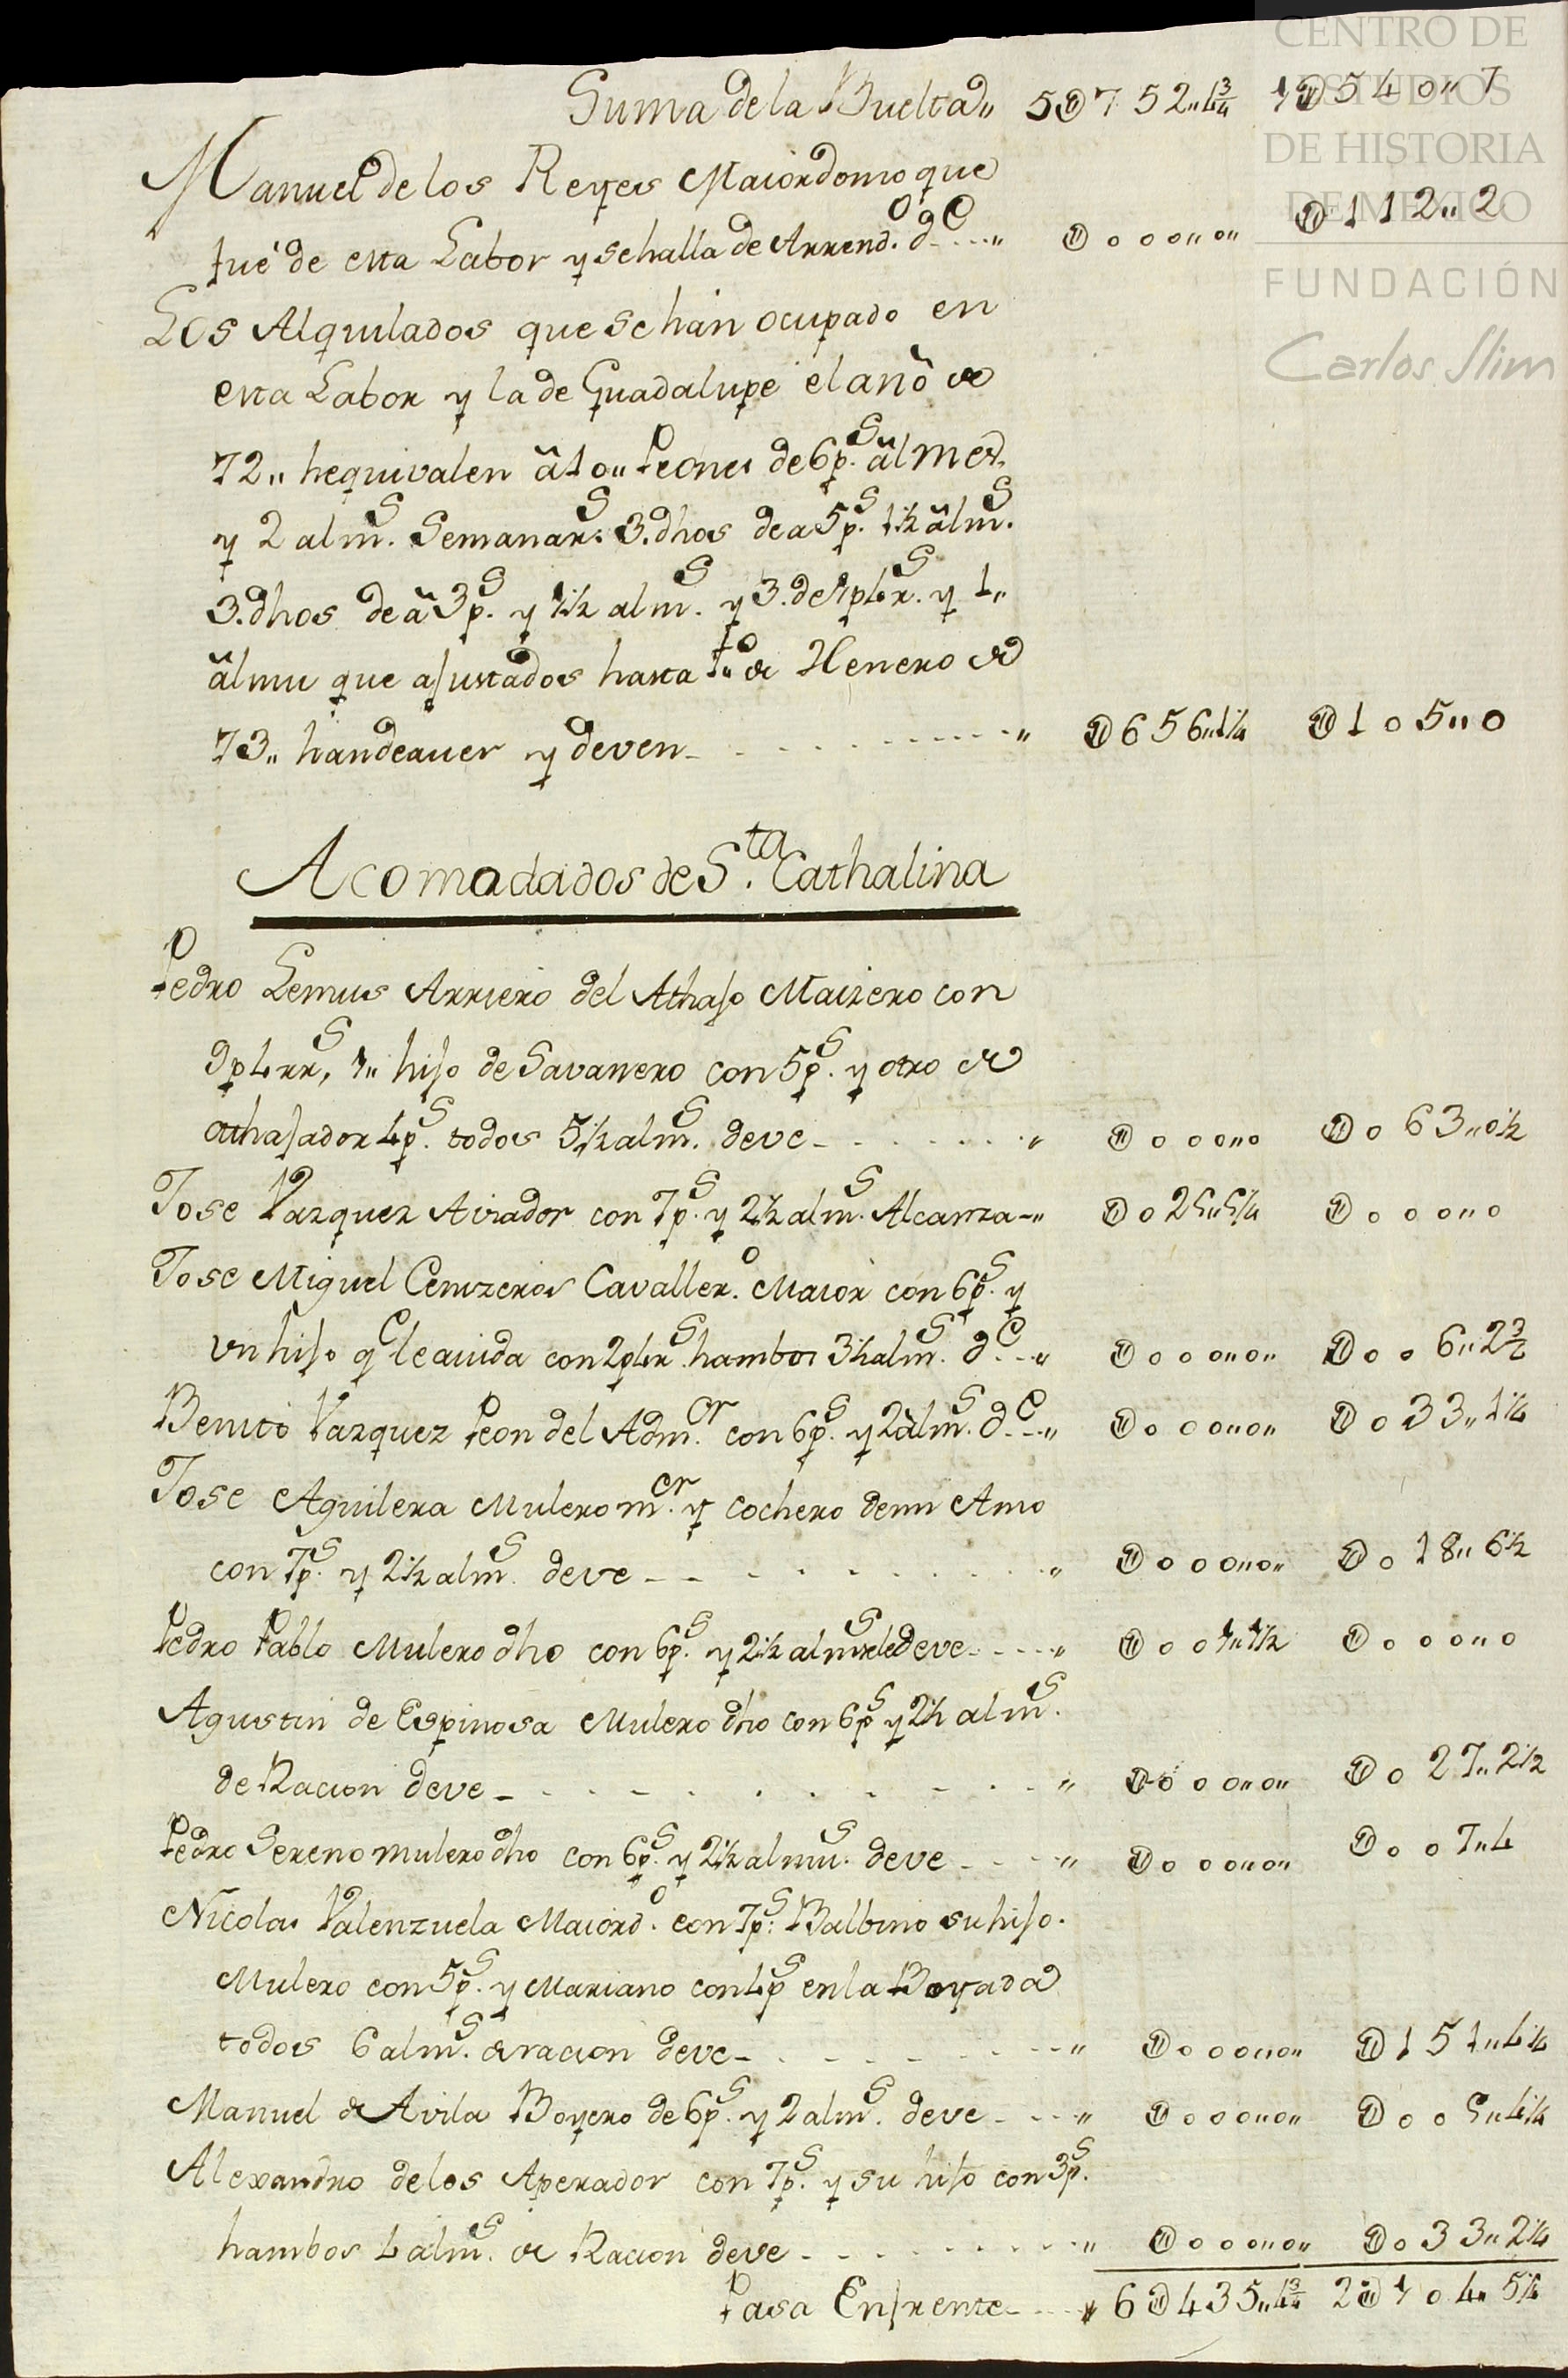 CENTRO DE
ESTUDIOS
DE HISTORIA
DE MEXICO
FUNDACIÓN
Carlos Slim
Suma de la Buelta„ 5Ⓤ752„4¾ 1Ⓤ540„7
Manuel de los Reyes Maiordomo que
fué de esta Labor y se halla de Arrend.º d.e „ Ⓤ000„0„ Ⓤ112„2
Los Alquilados que se han ocupado en
esta Labor y la de Guadalupe el año de
72„ hequivalen â 10„ Peones de 6p.s âl mes
y 2 alm.s Semanar.s 3. dhos de a 5p.s 1½ âlm.s
3. dhos de â 3p.s y 1½ alm.s y 3. de 2p4r.s y 1„
âlmu que ajustados hasta 1.º de Henero de
73„ han de auer y deven „ Ⓤ656„1¼ Ⓤ105„0
Acomodados de S.ta Cathalina
Pedro Lemus Arriero del Athajo Maizero con
9p4rr.s, 1„ hijo de Savanero con 5p.s y otro de
athajador 4p.s todos 5½ alm.s deve „ Ⓤ000„0 Ⓤ063„0½
Jose Vazquez Aviador con 7p.s y 2½ alm.s Alcanza „ Ⓤ025„5¼ Ⓤ000„0
Jose Miguel Cenizeros Cavaller.º Maior con 6p.s y
vn hijo q.e le aiuda con 2p4r.s hambos 3½ alm.s d.e „ Ⓤ000„0„ Ⓤ006„2
Benito Vazquez Peon del Adm.or con 6p.s y 2 âlm.s d.e „ Ⓤ000„0„ Ⓤ033„1¼
Jose Aguilera Mulero m.or y cochero de mi Amo
con 7p.s y 2½ alm.s deve „ Ⓤ000„0„ Ⓤ018„6½
Pedro Pablo Mulero dho con 6p.s y 2½ alm.s sele deve „ Ⓤ001„1½ Ⓤ000„0
Agustin de Espinosa Mulero dho con 6p.s y 2½ alm.s
de Racion deve „ Ⓤ000„0„ Ⓤ027„2½
Pedro Sereno mulero dho con 6p.s y 2½ almu.s deve „ Ⓤ000„0„ Ⓤ007„4
Nicolas Valenzuela Maiord.º con 7p.s Balbino su hijo.
Mulero con 5p.s y Mariano con 4p.s en la Boyada
todos 6 alm.s de racion deve „ Ⓤ000„0„ Ⓤ151„4¼
Manuel de Avila Boyero de 6p.s y 2 alm.s deve „ Ⓤ000„0„ Ⓤ005„4¼
Alexandro de los Aperador con 7p.s y su hijo con 3p.s
hambos 4 alm.s de Racion deve „ Ⓤ000„0„ Ⓤ033„2¼
Pasa Enfrente „ 6Ⓤ435„4¾ 2Ⓤ104„5¼